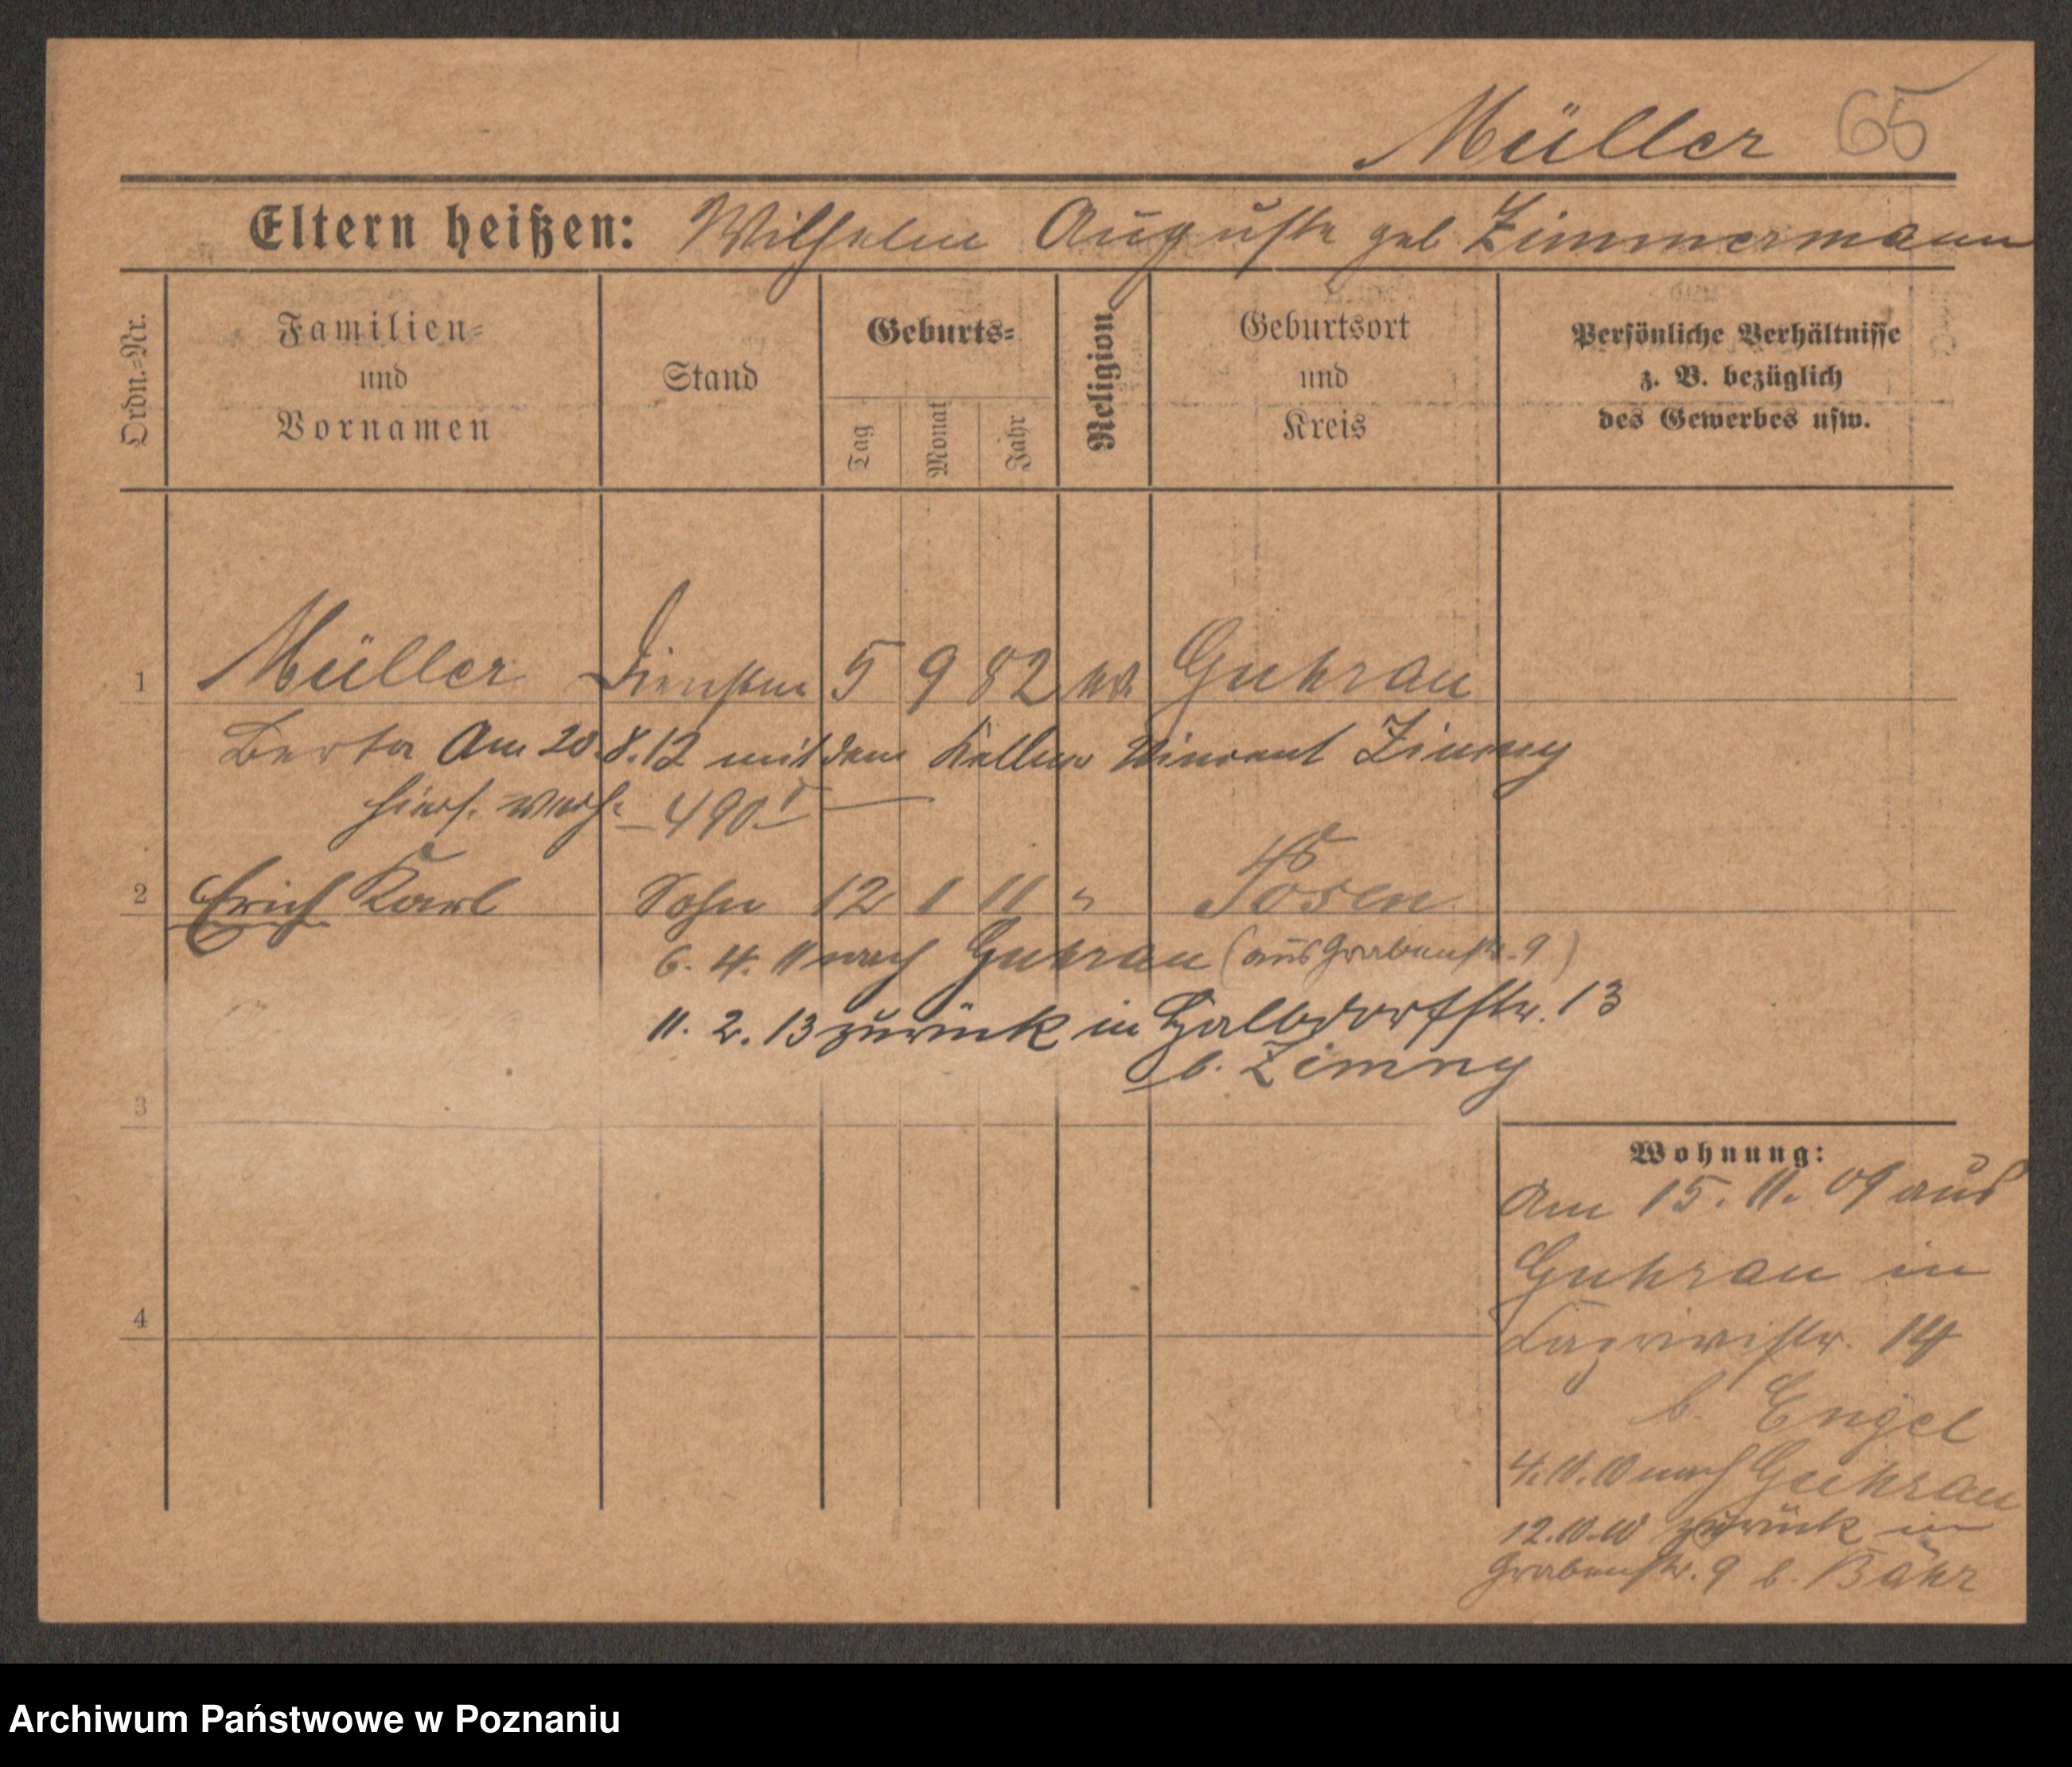 Müller 65
Eltern heißen: Wilhelm Auguste geb Zimmermann
Ordn.-Nr.
Familien-
und
Vornamen
Stand
Geburts-
Tag
Monat
Jahr
Religion
Geburtsort
und
Kreis
Persönliche Verhältnisse
z. B. bezüglich
des Gewerbes usw.
1 Müller 5 9 82 ev. Guhrau
Berta Am 20.8.12 mit dem Kellner Vincent Zimny
hiers. verh. 490
2 Erich Karl Sohn 12 1 11 " Posen
6. 4. 11 nach Guhrau (aus Grabenstr. 9)
11. 2. 13 zurück in Halbdorfstr. 13
b. Zimny
3
Wohnung:
Am 15. 11. 09 aus
Guhrau in
14
4
b. Engel
4.10.10 nach Guhrau
12.10.10 zurück in
Grabenstr. 9 b. Bähr
Archiwum Państwowe w Poznaniu